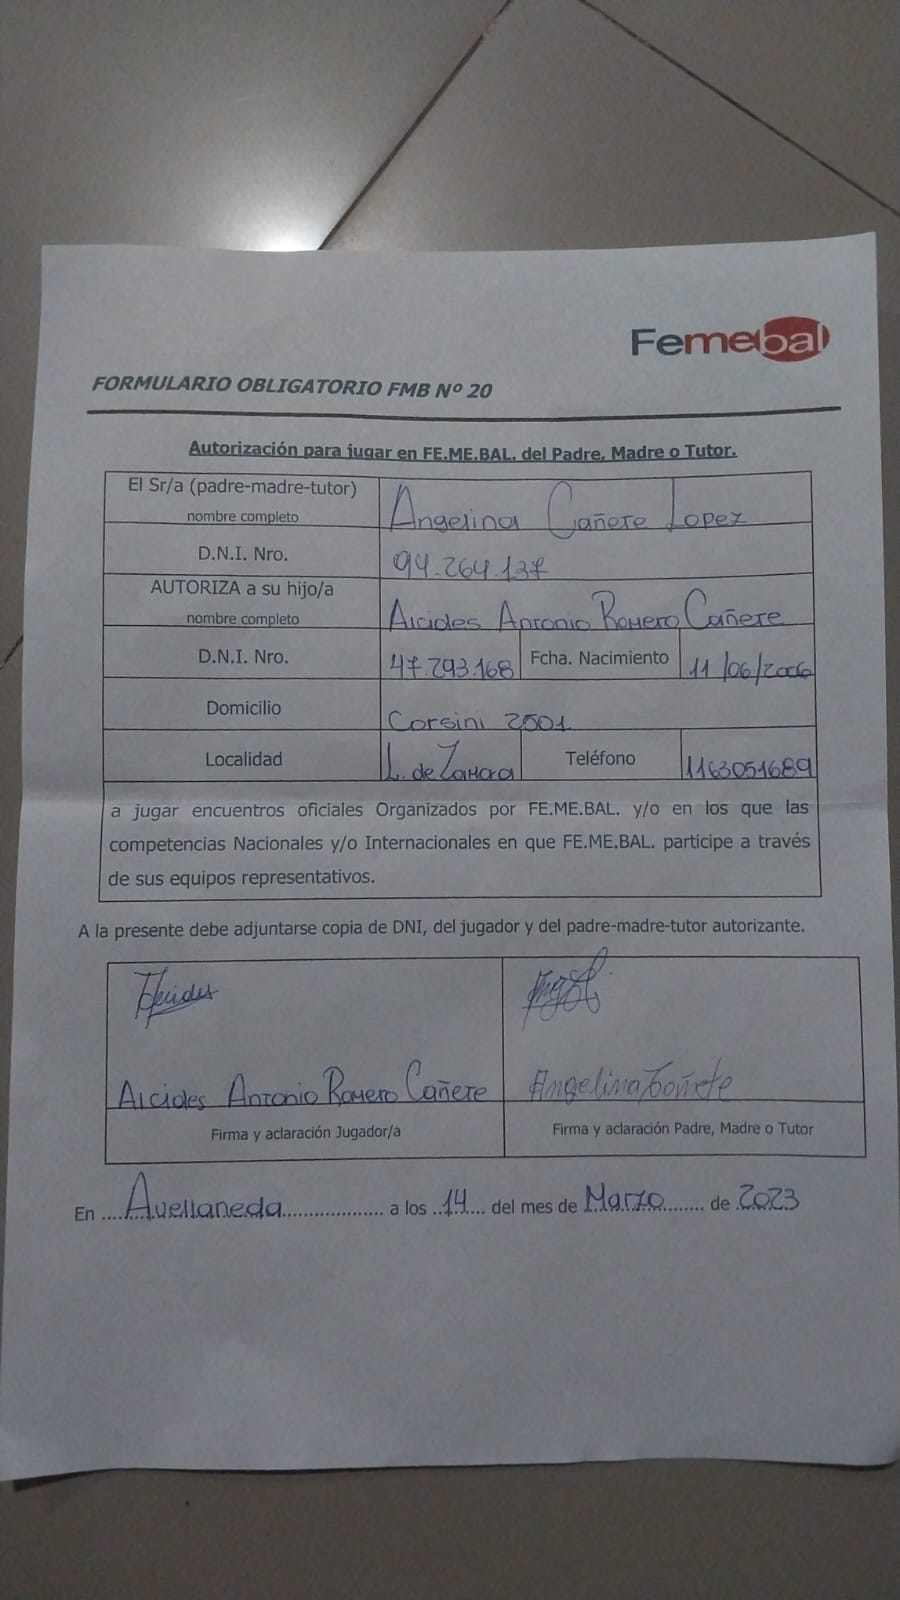 Femebal
FORMULARIO OBLIGATORIO FMB Nº 20
Autorización para jugar en FE.ME.BAL. del Padre, Madre o Tutor.
El Sr/a (padre-madre-tutor)
nombre completo
Angelina Cañete Lopez
D.N.I. Nro.
94.264.137
AUTORIZA a su hijo/a
nombre completo
Alcides Antonio Romero Cañete
D.N.I. Nro.
47.293.168
Fcha. Nacimiento
11/06/2006
Domicilio
Corsini 2501
Localidad
L. de Zamora
Teléfono
1163051689
a jugar encuentros oficiales Organizados por FE.ME.BAL. y/o en los que las
competencias Nacionales y/o Internacionales en que FE.ME.BAL. participe a través
de sus equipos representativos.
A la presente debe adjuntarse copia de DNI, del jugador y del padre-madre-tutor autorizante.
Alcides
Alcides Antonio Romero Cañete
Angelina Cañete
Firma y aclaración Jugador/a
Firma y aclaración Padre, Madre o Tutor
En ....Avellaneda.................. a los ..14.... del mes de Marzo........ de 2023